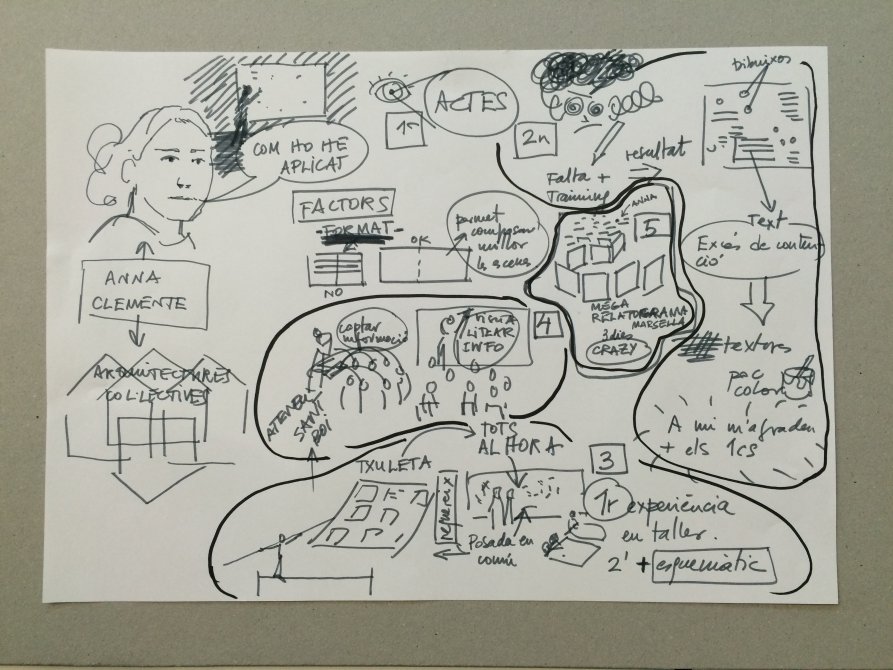 COM HO HE
APLICAT
ANNA
CLEMENTE
ARQUITECTURES
COL·LECTIVES
ACTES
1r
2n
Falta +
Training
resultat
Dibuixos
Text
Excés de conten-
ció
textures
poc
color
A mi m'agraden
+ els 1cs
FACTORS
FORMAT
NO
OK
permet
composar
millor
la escena
ANNA
5
MEGA
RELATOGRAMA
MARSELLA
3 dies
CRAZY
4
captar
informació
LITZAR
INFO
ATENEU
SANT
BOI
TOTS
ALHORA
TXULETA
3
1r experiència
en taller.
2' + esquemàtic
Posada en
comú